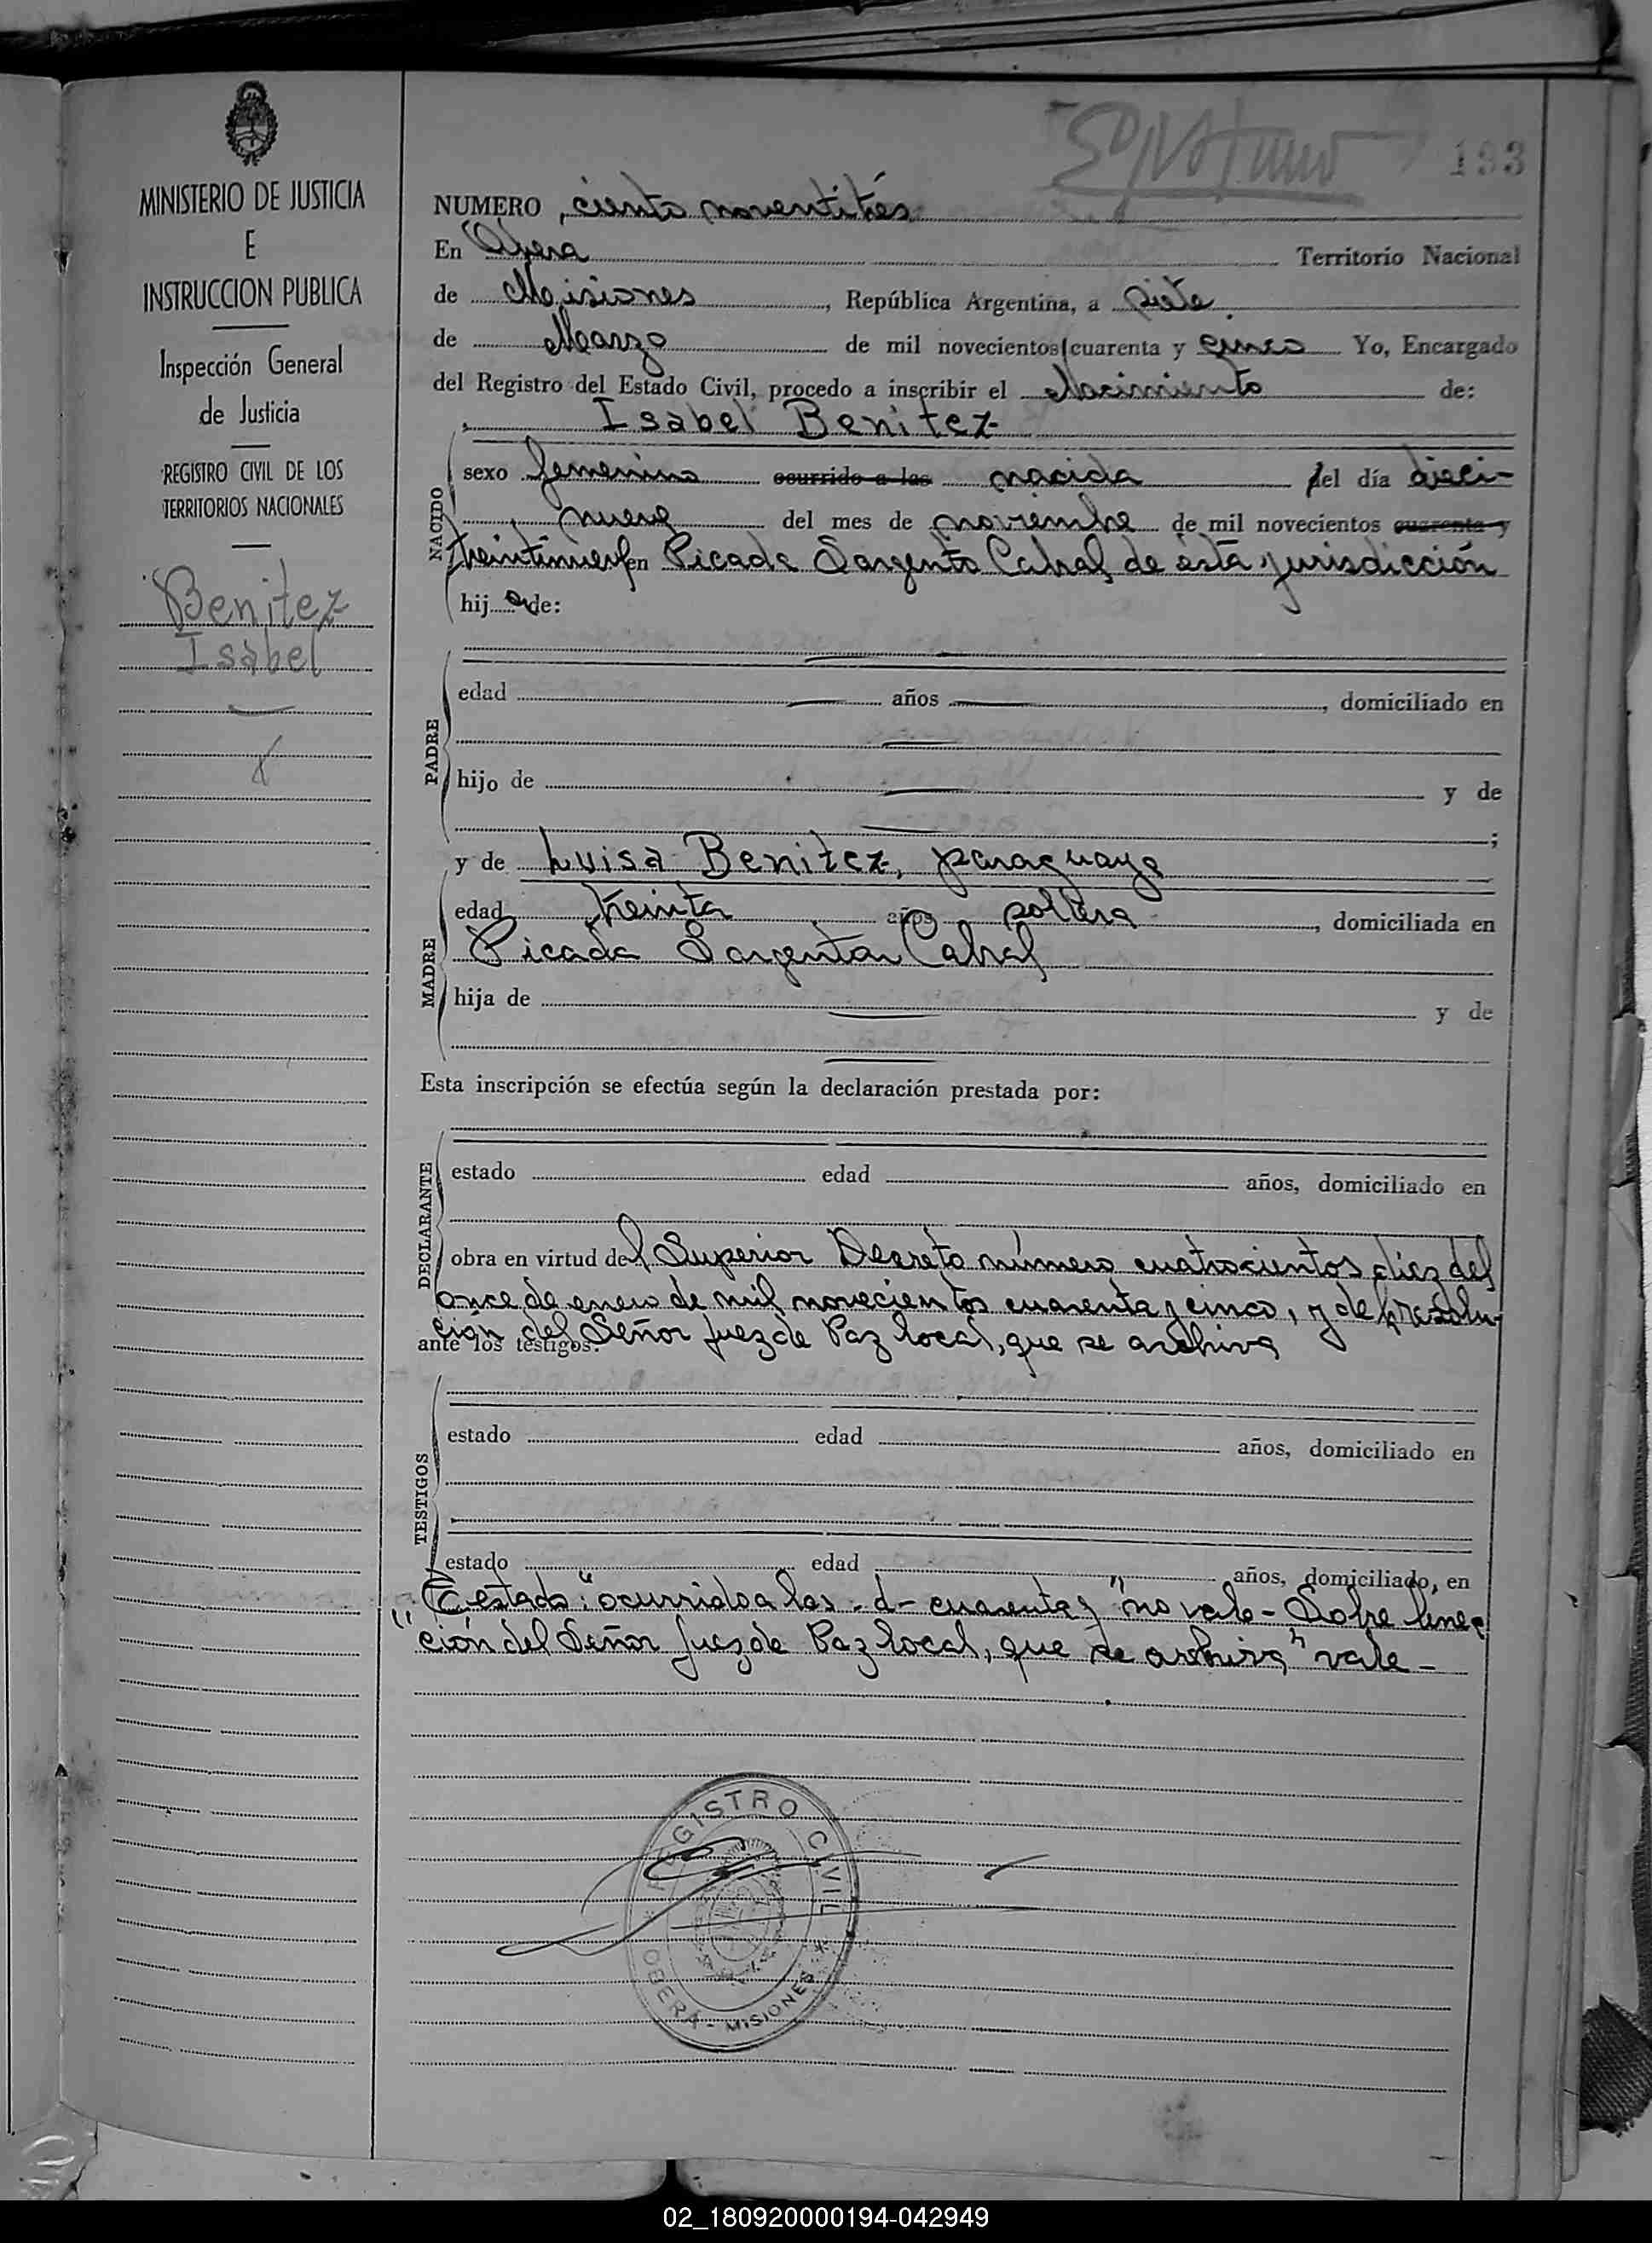 193
MINISTERIO DE JUSTICIA
E
INSTRUCCION PUBLICA
Inspección General
de Justicia
REGISTRO CIVIL DE LOS
TERRITORIOS NACIONALES
Benitez
Isabel
NUMERO ciento noventitrés
En Oberá Territorio Nacional
de Misiones, República Argentina, a siete
de Marzo de mil novecientos cuarenta y cinco Yo, Encargado
del Registro del Estado Civil, procedo a inscribir el Nacimiento de:
Isabel Benitez
NACIDO
sexo femenino ocurrido a las nacida del día dieci-
nueve del mes de noviembre de mil novecientos cuarenta y
treintinueve en Picada Sargento Cabral de esta jurisdicción
hij a de:
PADRE
edad años , domiciliado en
hijo de y de
;
y de Luisa Benitez, paraguaya
MADRE
edad treinta años soltera , domiciliada en
Picada Sargento Cabral
hija de y de
Esta inscripción se efectúa según la declaración prestada por:
DECLARANTE
estado edad años, domiciliado en
obra en virtud del Superior Decreto número cuatrocientos diez del
once de enero de mil novecientos cuarenta y cinco, y de resolu-
ción del Señor Juez de Paz local, que se archiva
ante los testigos:
TESTIGOS
estado edad años, domiciliado en
estado edad años, domiciliado, en
Testado: "ocurrido a las - d - cuarenta y" no vale - Sobre línea
"ción del Señor Juez de Paz local, que se archiva" vale -
REGISTRO CIVIL
OBERA - MISIONES
02_180920000194-042949